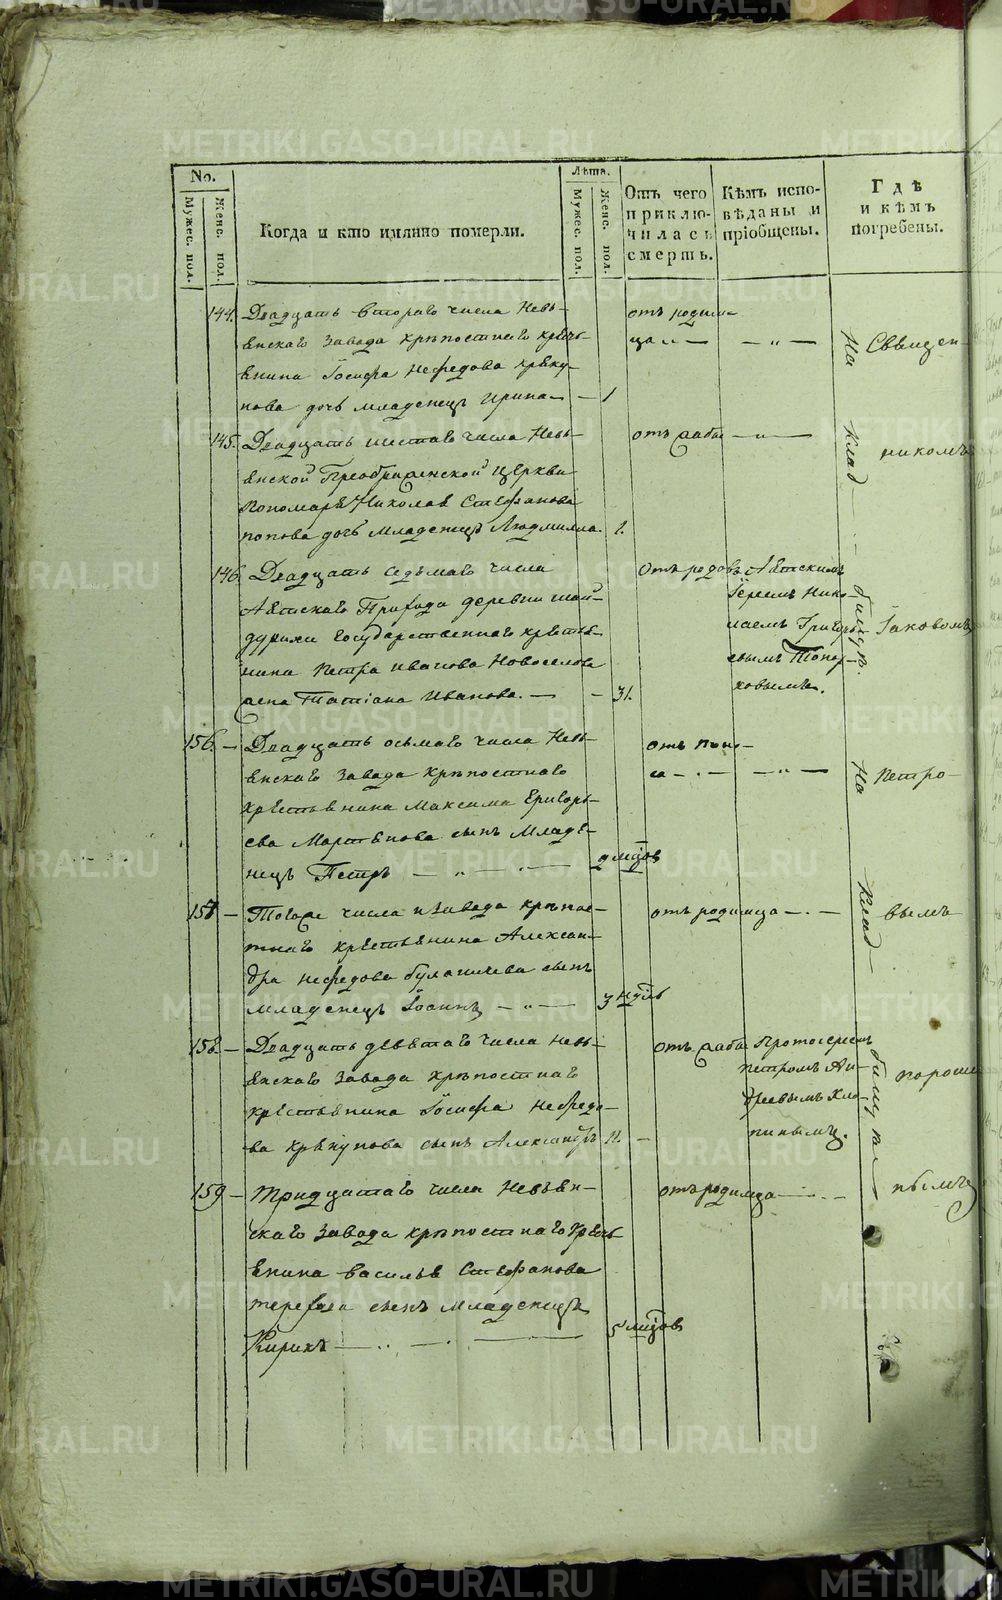 No.
Мужес. пол.
Женс. пол.
Когда и кто имянно померли.
Лѣта.
Мужес. пол.
Женс. пол.
Отъ чего приклю-чилась смерть.
Кѣмъ испо-вѣданы и пріобщены.
Гдѣ и кѣмъ погребены.
144. Двадцать втораго числа Невь-
янскаго завода крѣпостнаго кресть-
янина Іосифа Нефедова
дочь младенецъ Ирина — 1
отъ родим-
ца — — „ —
145. Двадцать шестаго числа Невь-
янской Преображенской церкви
Пономаря Николая Стефанова
Попова дочь младенецъ Людмилла. 2.
отъ — „ —
146. Двадцать седьмаго числа
Аятскаго Прихода деревни Шай-
дурихи государственнаго кресть-
нина Петра Иванова Новоселова
жена Татіана Иванова. — — 31.
отъ родовъ
Аятскимъ
Іереемъ Нико-
лаемъ Григорь-
евымъ Топор-
ковымъ.
156. — Двадцать осьмаго числа Невь-
янскаго завода крѣпостнаго
крестьянина Максима Григорь-
ева Мартьянова сынъ младе-
нецъ Петръ — „ — . —
отъ поно-
са — . — — „ —
157 — Тогоже числа и завода крѣпос-
тнаго крестьянина Алексан-
дра Нефедова сынъ
младенецъ Іоаннъ — „ — 3 недѣль
отъ родимца — . —
158. — Двадцать девятаго числа Невь-
янскаго завода крѣпостнаго
крестьянина Іосифа Нефедо-
ва сынъ Александръ
отъ
Протоіереемъ
Петромъ Ан-
дреевымъ Кла-
пинымъ.
159 — Тридцатаго числа Невьян-
скаго завода крѣпостнаго кресть
янина Василья Стефанова
Терехова сынъ младенецъ
Кирикъ — .. — . — 5 мцовъ
отъ родимца — .. —
На
Клад-
бищѣ.
На
Клад-
бищѣ —
Священ-
никомъ
Іаковомъ
Петро-
вымъ